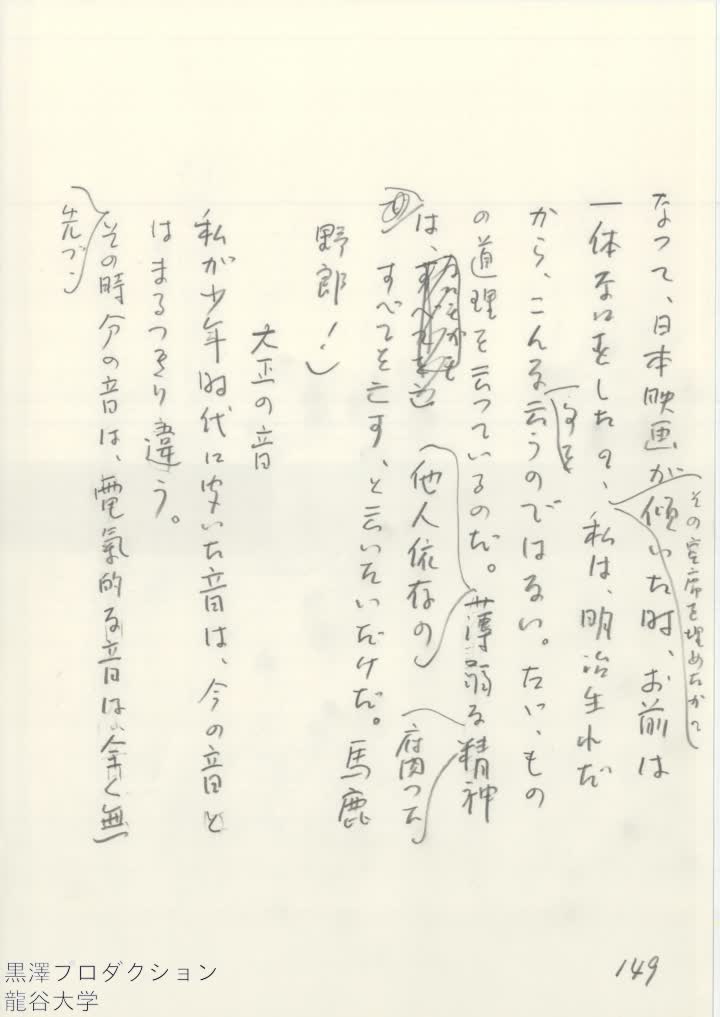 なって、日本映画が傾いた時、お前は
その空席を埋めたかて
一体なにをしたの、私は、明治生れだ
から、こんな云うのではない。たゞ、もの
事を
の道理を云っているのだ。薄弱な精神
は、すべてを
他人依存の
腐った
すべてを亡す、と云いたいだけだ。馬鹿
野郎！」
大正の音
私が少年時代に聞いた音は、今の音と
はまるっきり違う。
その時分の音は、電氣的な音は全く無
先づ、
149
黒澤プロダクション
龍谷大学